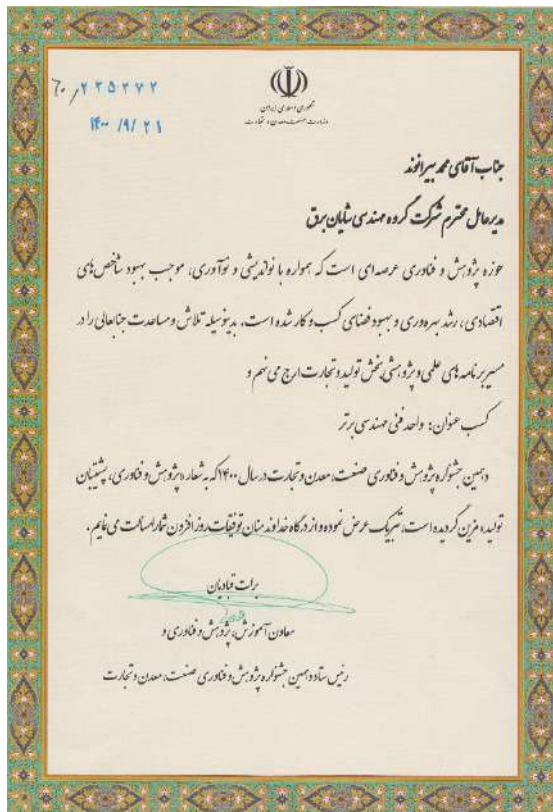 ۶۰/۲۳۵۲۷۲
۱۴۰۰/۹/۲۱
جمهوری اسلامی ایران
وزارت صنعت، معدن و تجارت
جناب آقای محمد بیرانوند
مدیرعامل محترم شرکت گروه مهندسی شایان برق
حوزه پژوهش و فناوری عرصه‌ای است که همواره با نواندیشی و نوآوری، موجب بهبود شاخص‌های
اقتصادی، رشد بهره‌وری و بهبود فضای کسب و کار شده است. بدینوسیله تلاش و مساعدت جنابعالی را در
مسیر برنامه‌های علمی و پژوهشی بخش تولید و تجارت ارج می‌نهم و
کسب عنوان: واحد فنی مهندسی برتر
دهمین جشنواره پژوهش و فناوری صنعت، معدن و تجارت در سال ۱۴۰۰ که به شعار «پژوهش و فناوری، پشتیبان
تولید» مزین گردیده است، تبریک عرض نموده و از درگاه خداوند منان توفیقات روزافزون شما را مسالت می‌نمایم.
برات قبادیان
معاون آموزش، پژوهش و فناوری و
رئیس ستاد دهمین جشنواره پژوهش و فناوری صنعت، معدن و تجارت